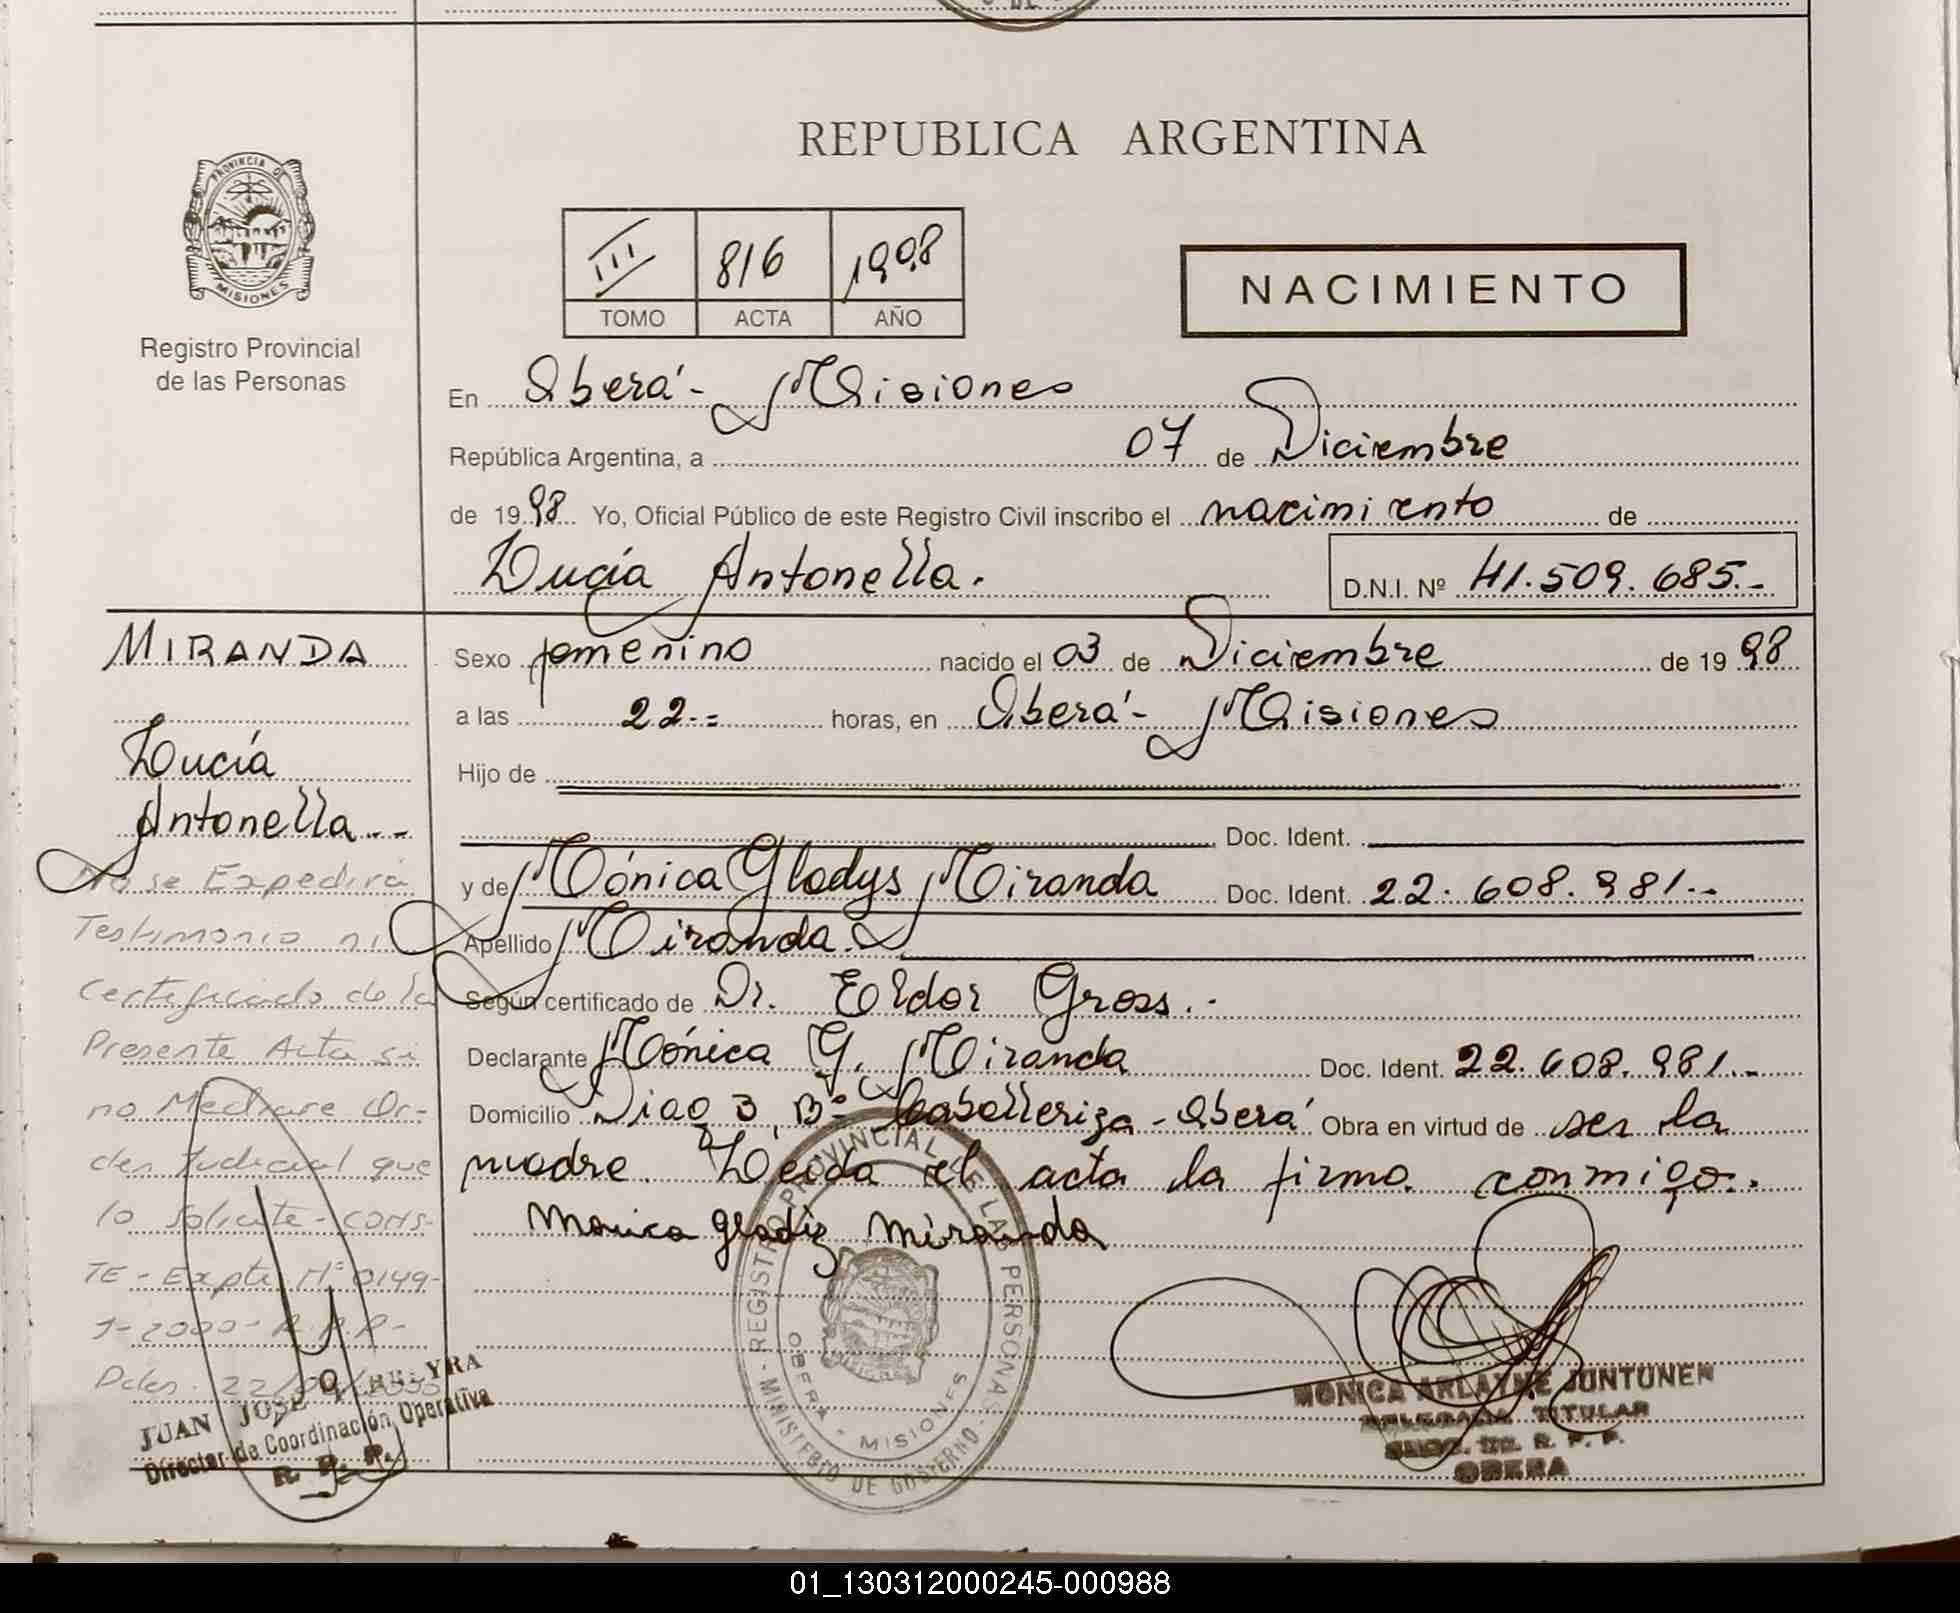 REPUBLICA ARGENTINA
PROVINCIA DE
MISIONES
Registro Provincial
de las Personas
III 816 1998
TOMO ACTA AÑO
NACIMIENTO
En Oberá - Misiones
República Argentina, a 07 de Diciembre
de 1998 Yo, Oficial Público de este Registro Civil inscribo el nacimiento de
Lucía Antonella. D.N.I. Nº 41.509.685.-
MIRANDA
Lucía
Antonella--
No se Expedirá
Testimonio ni
Certificado de la
Presente Acta si
no Mediare Or-
den Judicial que
lo Solicite - CONS-
TE - Expte Nº 0149-
1-2000- R.P.P-
JUAN JOSE
Director de Coordinación Operativa
R. P. P.
Sexo femenino nacido el 03 de Diciembre de 1998
a las 22.= horas, en Oberá - Misiones
Hijo de
Doc. Ident.
y de Mónica Gladys Miranda Doc. Ident. 22.608.981.-
Apellido Miranda.
Según certificado de Dr. Eldor Gross.-
Declarante Mónica G. Miranda Doc. Ident. 22.608.981.-
Domicilio Diag 3, Bº Caballeriza - Oberá Obra en virtud de ser la
madre. Leída el acta la firma conmigo.
Monica gladiz Miranda
REGISTRO PROVINCIAL DE LAS PERSONAS - MINISTERIO DE GOBIERNO -
OBERA - MISIONES
MONICA ARLAYNE JUNTUNEN
DELEGADA TITULAR
R. P. P.
OBERA
01_130312000245-000988